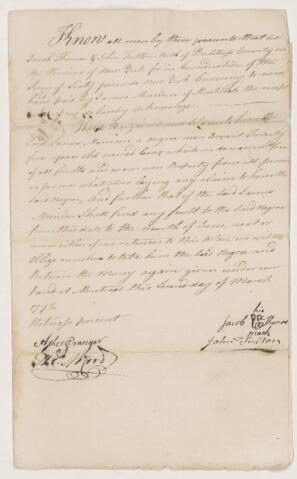 Know all men by these presents that we
Jacob Thomas & John Fulton, both of Dutchess County in
the Province of New York for in Consideration of the
Sum of Sixty pounds New York Currency to us in
hand paid by James Morrison of Montreal the receipt
we do hereby acknoledge
Have Bargained and Sold unto him the
said James Morrison, a negro man servant Twenty
five years old named which we do warrant free
of all and as our own Property from all person
or persons whatsoever laying any claim to him the
said Negro, and further that if the said James
Morrison Shall find any fault to the said Negro
from this date to the month of June next or
and either of our returns to this place we will
oblige ourselves to take him the said Negro and
Return the Money again given under our
hand at Montreal this Second day of March
Witness present
his
Jacob Thomas
mark
John Fulton